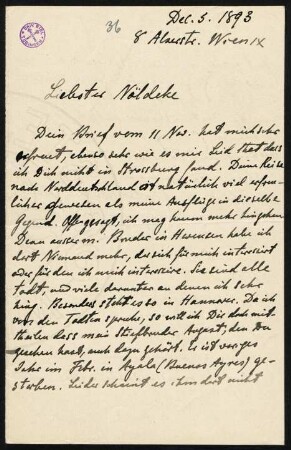 36
Dec. 5. 1893
8 Alserstr. Wien IX
Liebster Nöldeke
Dein Brief vom 11 Nov. hat mich sehr
erfreut, ebenso sehr wie es mir Leid that dass
ich Dich nicht in Strassburg fand. Deine Reise
nach Norddeutschland ist natürlich viel erfreu-
licher gewesen als meine Ausflüge in dieselbe
Gegend. Offengesagt, ich mag kaum mehr hingehen
Denn ausser m. Bruder in Harmen habe ich
dort Niemand mehr, der sich für mich interessirt
oder für den ich mich interessire. Sie sind alle
todt, und viele darunter an denen ich sehr
hing. Besonders steht es so in Hannover. Da ich
von den Todten spreche, so will ich Dir doch mit-
theilen dass mein Stiefbruder August, den Du
gesehen hast, auch dazu gehört. Er ist voriges
Jahr im Febr. in Ayala (Buenos Ayres) ge-
storben. Leider scheint es ihm dort nicht